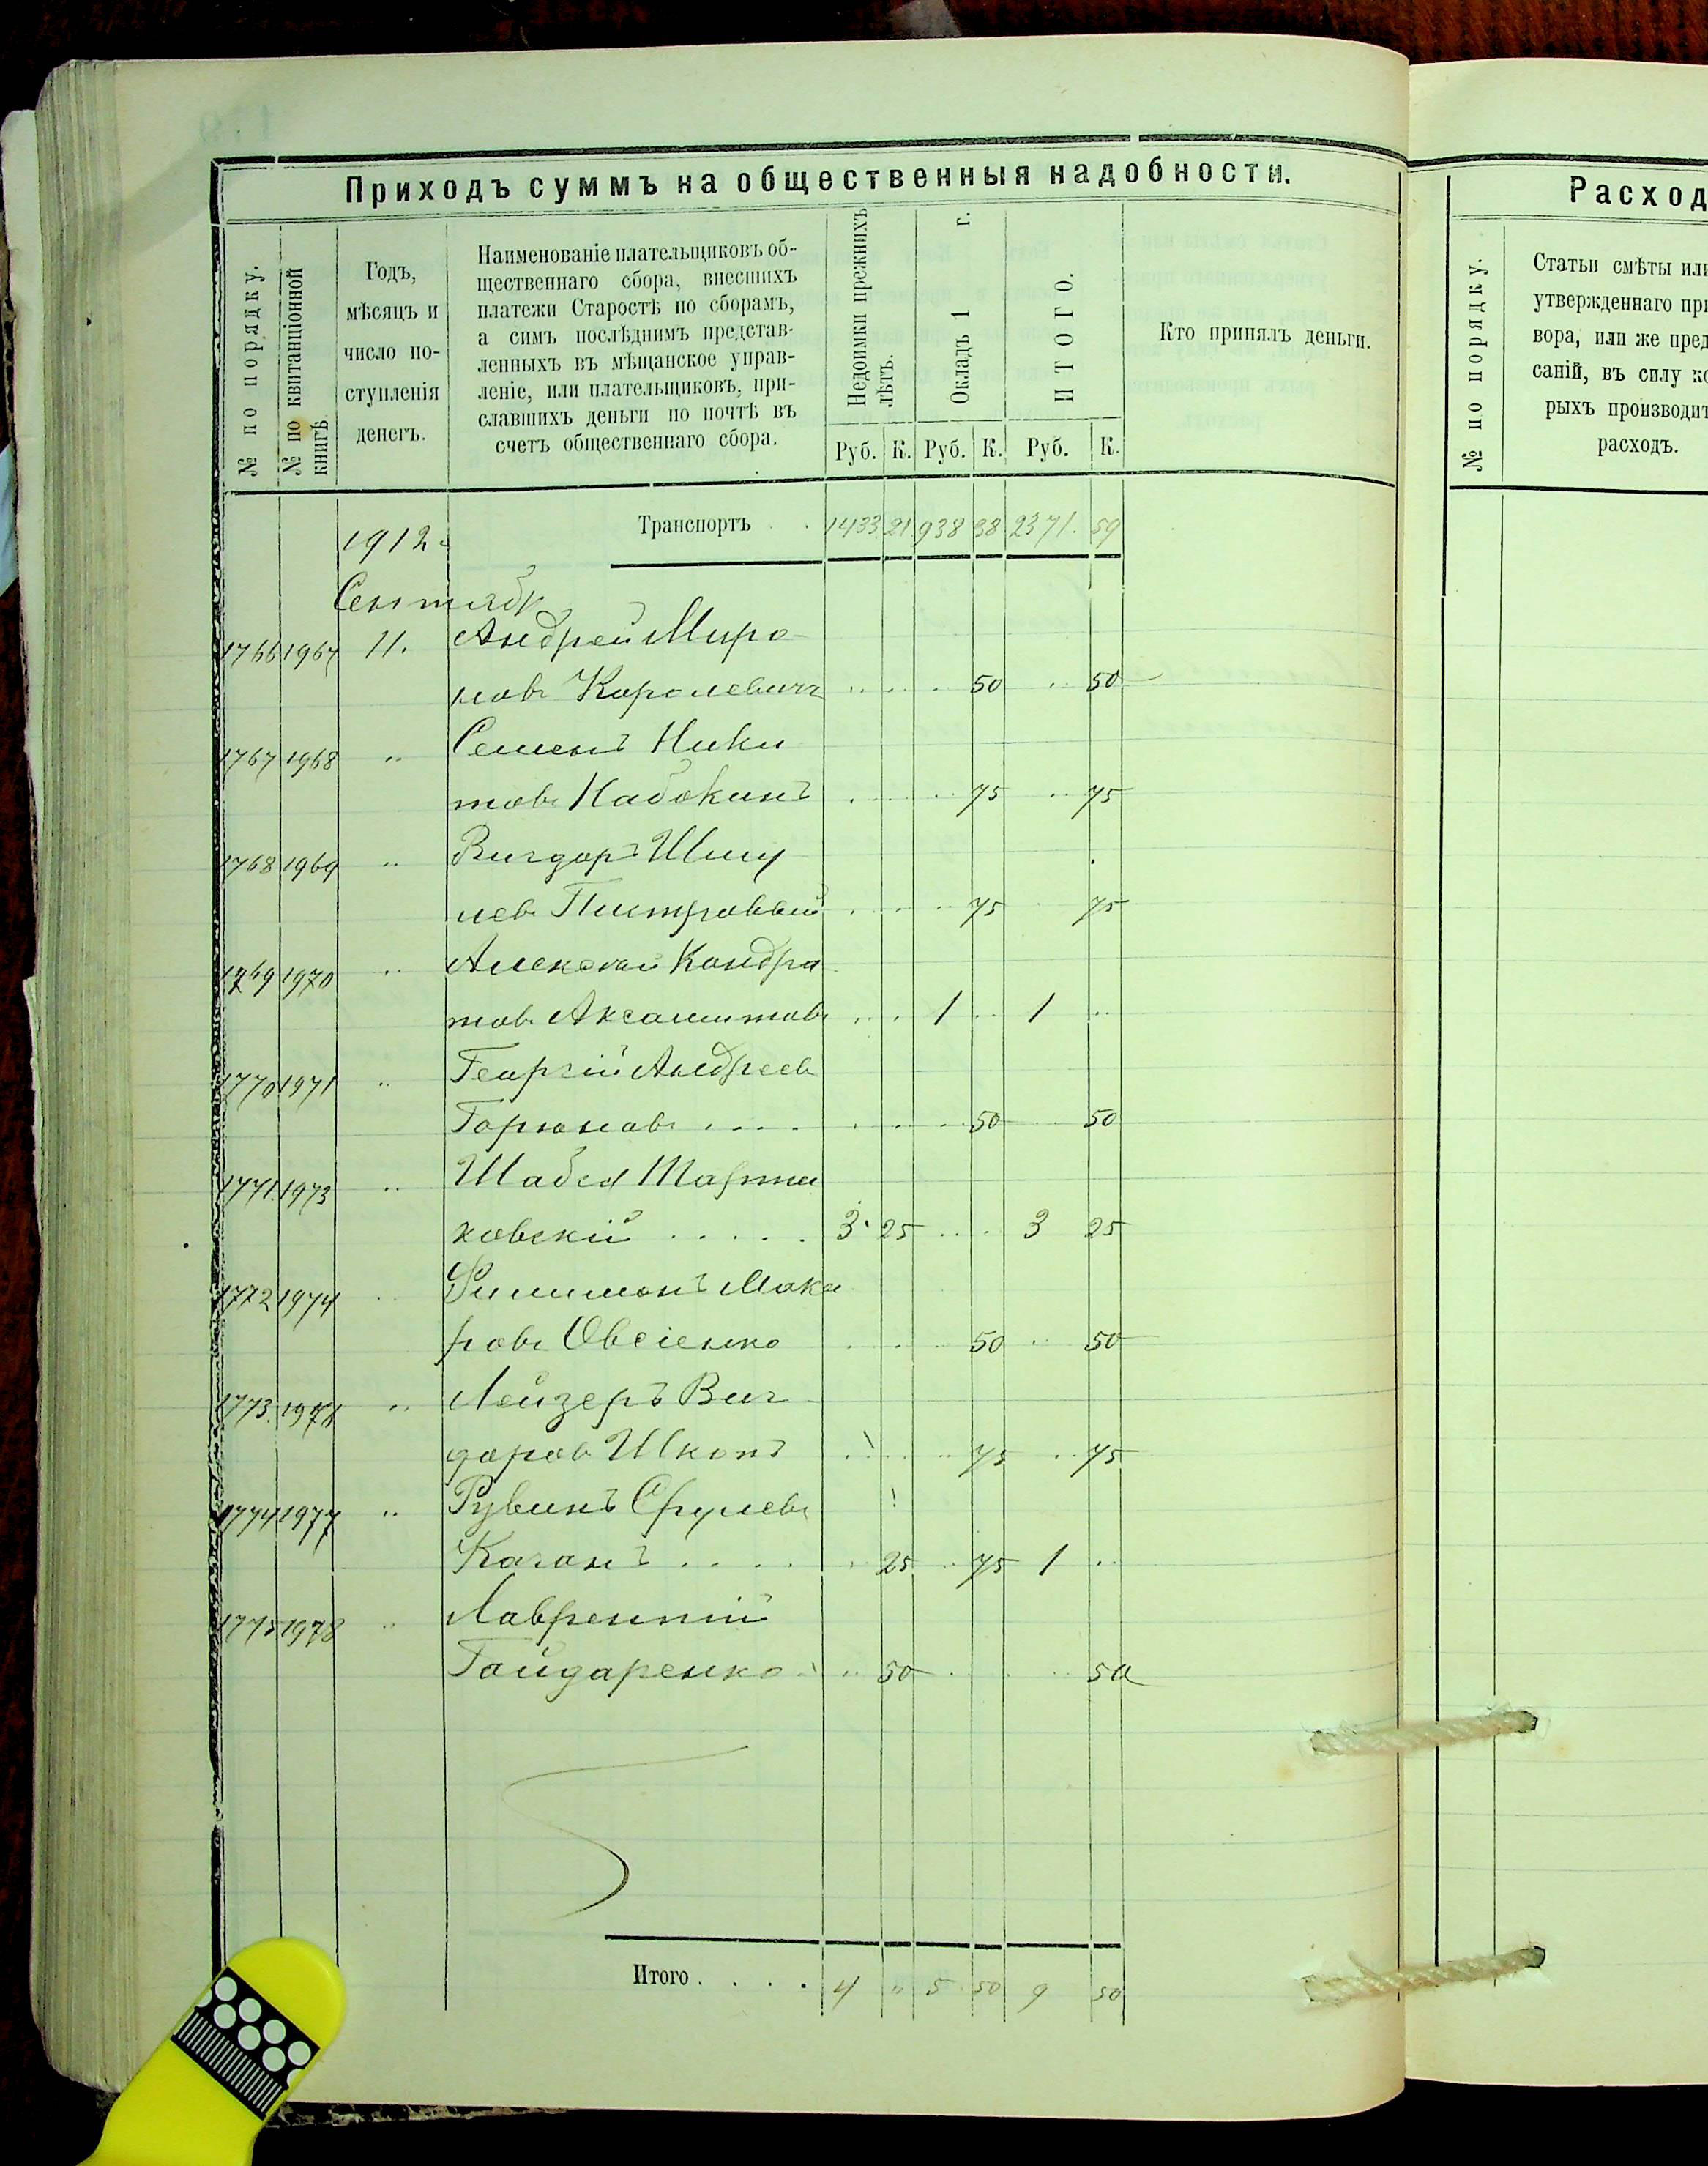 Приходъ суммъ на общественныя надобности.
№ по порядку.
№ по квитанціонной книгѣ
Годъ,
мѣсяцъ и
число по-
ступленія
денегъ.
Наименованіе плательщиковъ об-
щественнаго сбора, внесшихъ
платежи Старостѣ по сборамъ,
а симъ послѣднимъ представ-
ленныхъ въ мѣщанское управ-
леніе, или плательщиковъ, при-
славшихъ деньги по почтѣ въ
счетъ общественнаго сбора.
Недоимки прежнихъ
лѣтъ.
Окладъ 1 г.
ИТОГО.
Кто принялъ деньги.
Руб. К. Руб. К. Руб. К.
Транспортъ . . 1433 21 938 38 2371. 59
1912.
Сентябр
1766 1967 11. Андрей Миро-
новъ 50 50
1767 1968 " Семенъ Ники
товъ Набокинъ 75 75
1768 1969 " Вигдоръ Шму
лев 75 75
1769 1970 " Алексей Кондра
товъ Аксамитовъ 1 1
1770 1971 " Георгій Андреев
Горюновъ .... 50 50
1771 1973 "
ковскій ..... 3 25 3 25
1772 1974 Филимонъ Мака
ровъ Овсіенко 50 50
1773. " Лейзеръ Виг-
доров Шкопъ 75 75
1774 1977 " Рувинъ Срулевъ
Каганъ .... 25 75 1
1775 1978 " Лаврентій
Гайдаренко 50 50
Итого . . . . 4 " 5 50 9 50
Расход
№ по порядку.
Статьи смѣты или
утвержденнаго при
вора, или же пред
саній, въ силу ко
рыхъ производит
расходъ.